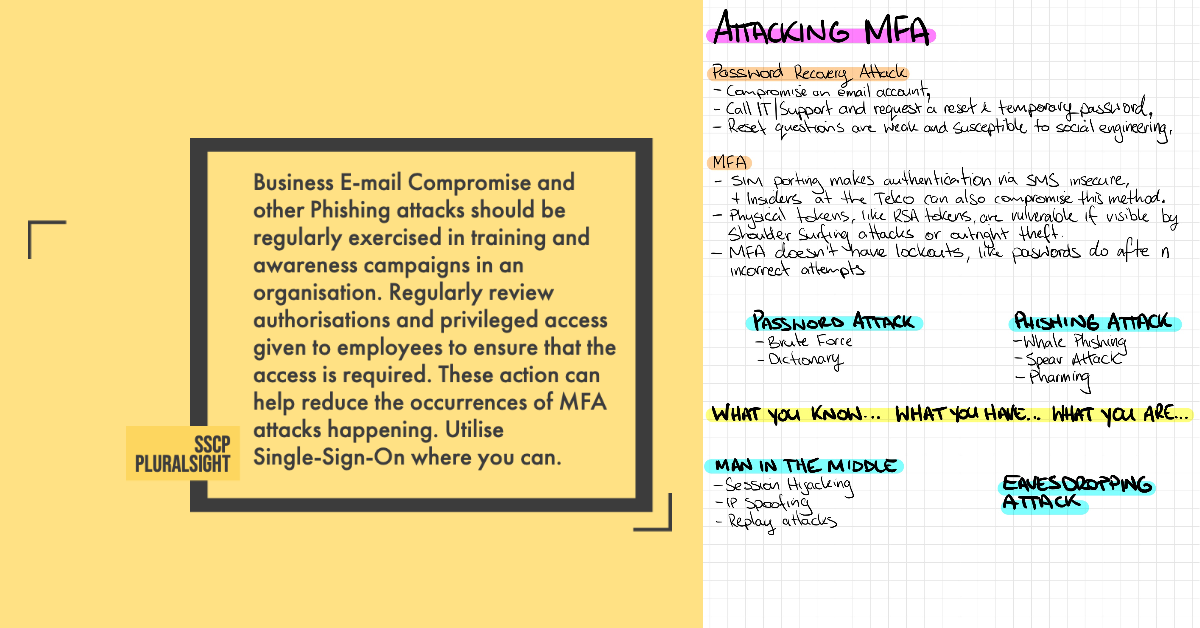 Business E-mail Compromise and
other Phishing attacks should be
regularly exercised in training and
awareness campaigns in an
organisation. Regularly review
authorisations and privileged access
given to employees to ensure that the
access is required. These action can
help reduce the occurrences of MFA
attacks happening. Utilise
Single-Sign-On where you can.
SSCP
PLURALSIGHT
ATTACKING MFA
Password Recovery Attack
- Compromise an email account,
- Call IT/Support and request a reset & temporary password,
- Reset questions are weak and susceptible to social engineering,
MFA
- SIM porting makes authentication via SMS insecure,
+ Insiders at the Telco can also compromise this method.
- Physical tokens, like RSA tokens, are vulverable if visible by
Shoulder Surfing attacks or outright theft.
- MFA doesn't have lockouts, like paswords do afte n
incorrect attempts
PASSWORD ATTACK
- Brute Force
- Dictionary
PHISHING ATTACK
- Whale Phishing
- Spear Attack
- Pharming
WHAT YOU KNOW... WHAT YOU HAVE... WHAT YOU ARE...
MAN IN THE MIDDLE
- Session Hijacking
- IP Spoofing
- Replay attacks
EAVESDROPPING
ATTACK